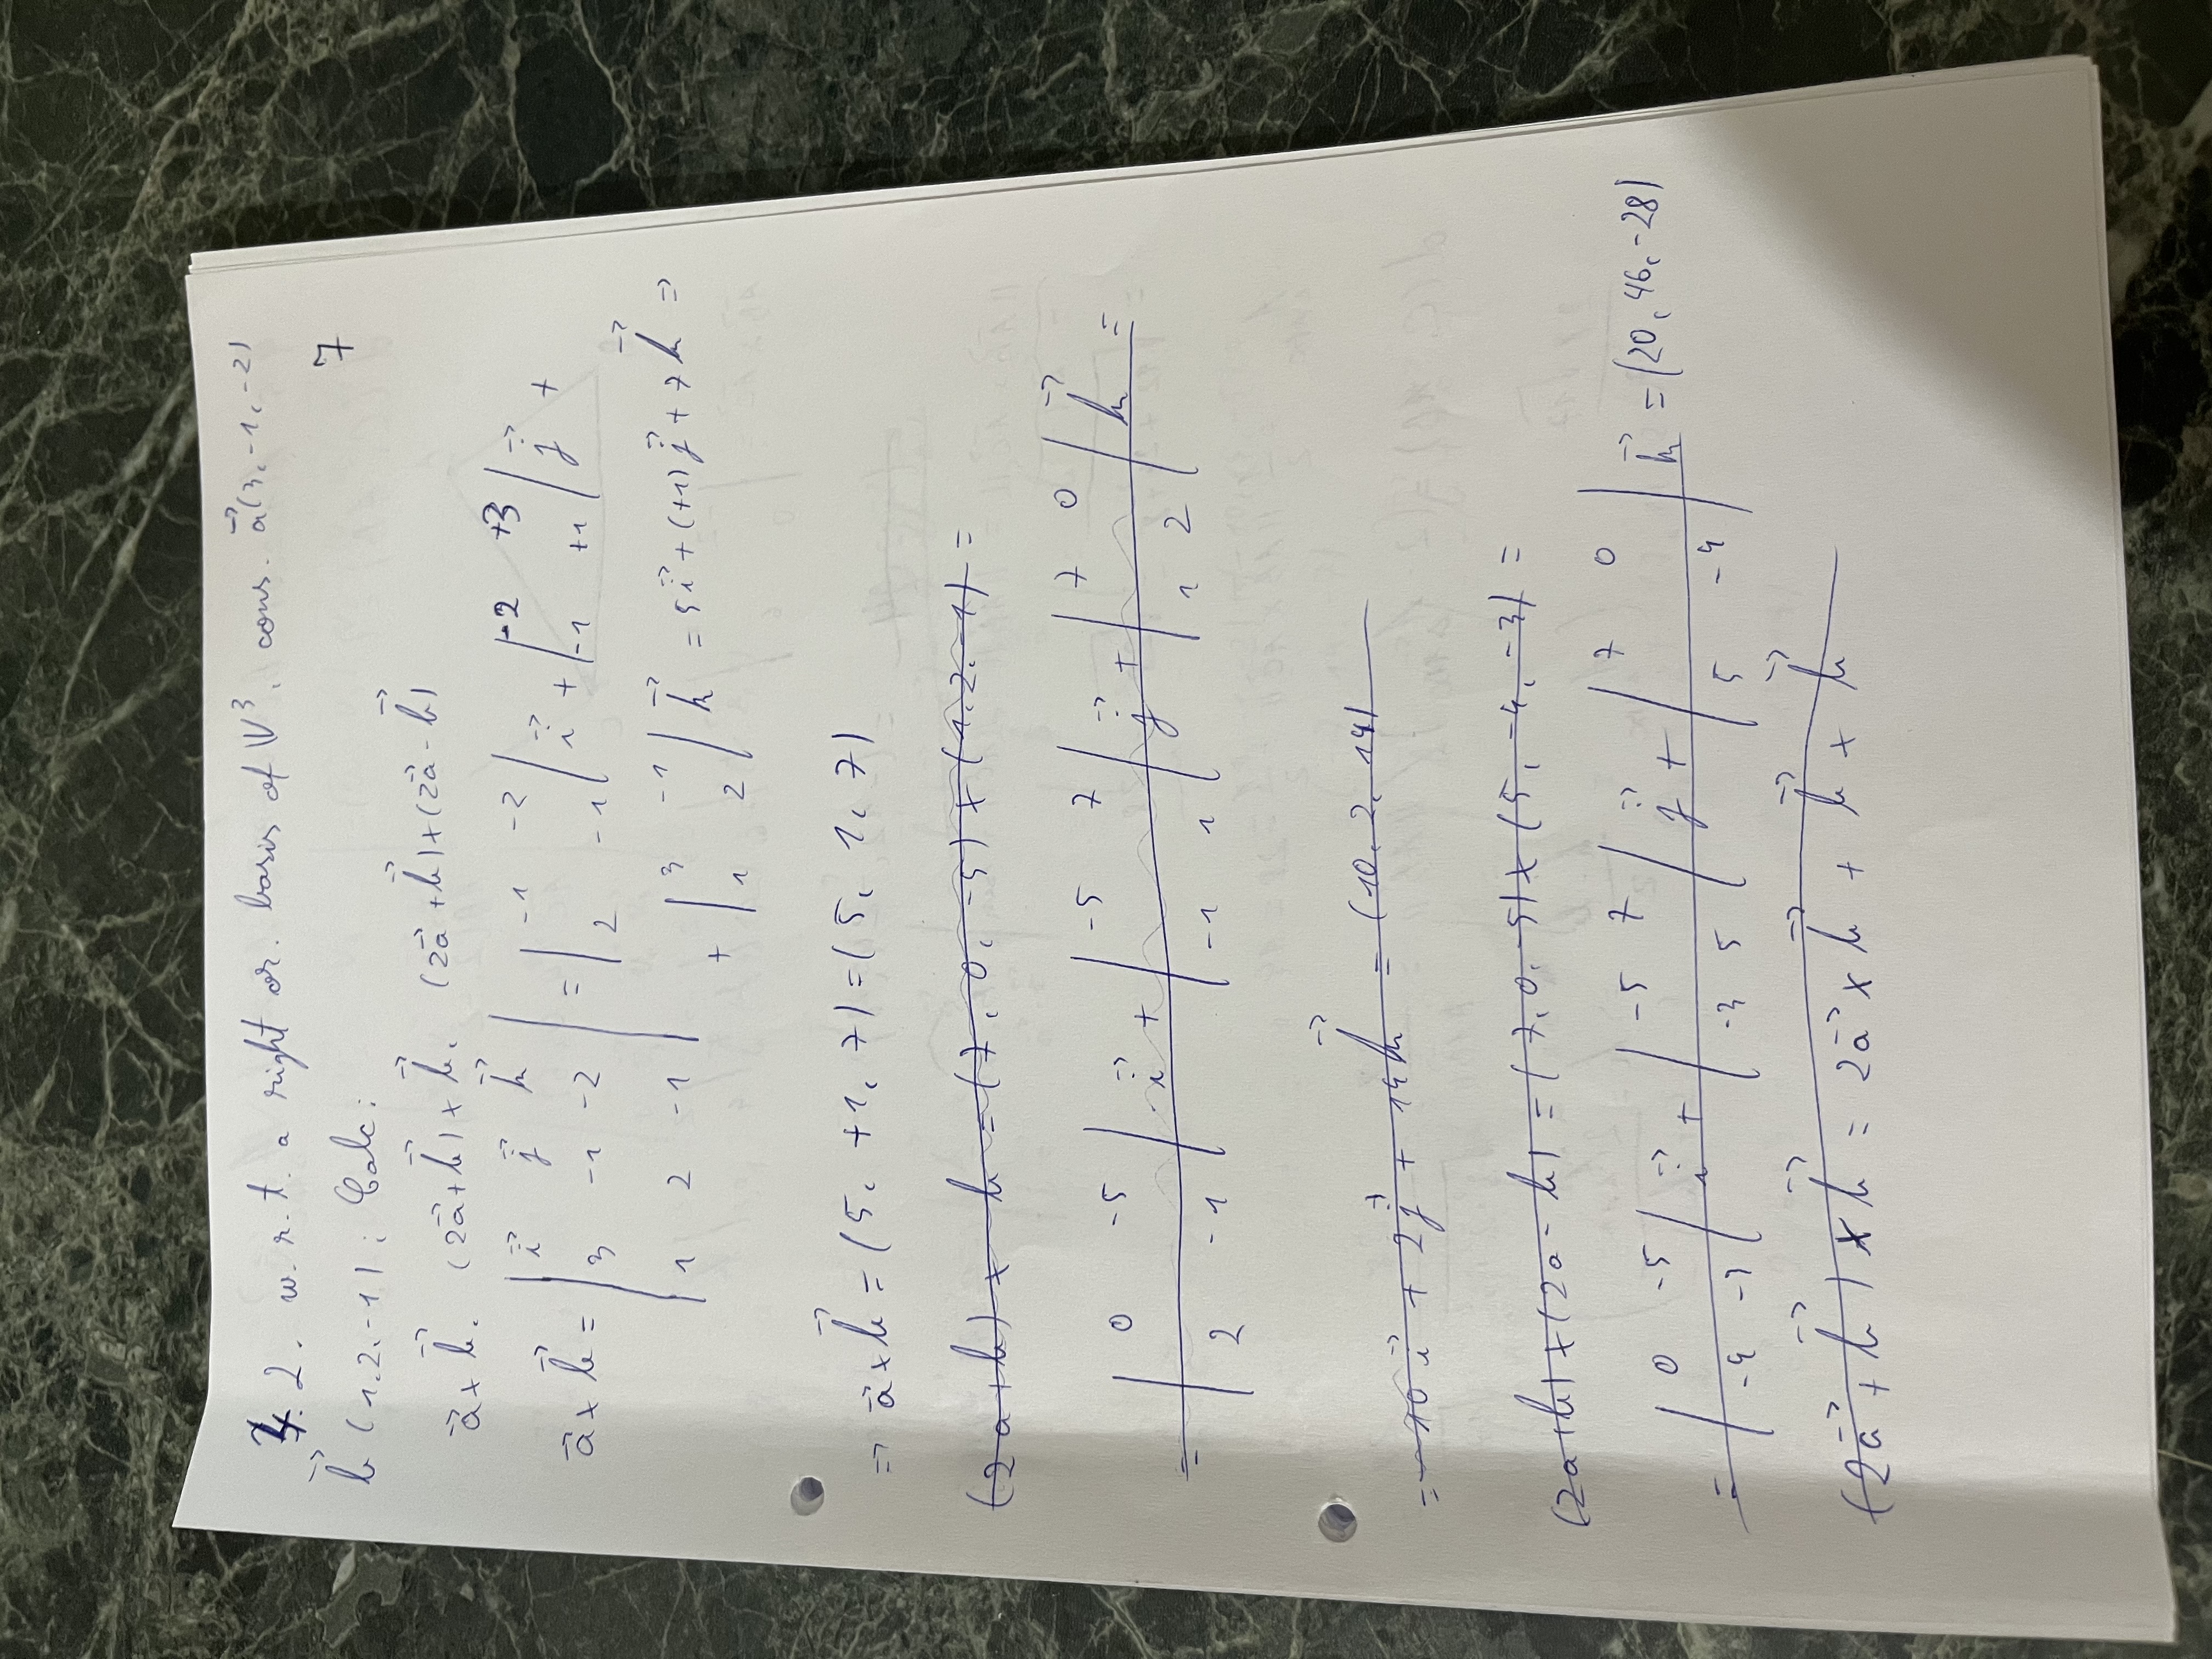 4.2. w.r.t. a right or. basis of 𝕍³, cons. a⃗(3,-1,-2)
7
b⃗(1,2,-1); Calc:
a⃗×b⃗, (2a⃗+b⃗)×b⃗, (2a⃗+b⃗)×(2a⃗-b⃗)
a⃗×b⃗ = | i⃗ j⃗ k⃗ ; 3 -1 -2 ; 1 2 -1 | = | -1 -2 ; 2 -1 | i⃗ + | -2 +3 ; -1 +1 | j⃗ +
+ | 3 -1 ; 1 2 | k⃗ = 5i⃗+(+1)j⃗+7k⃗ ⇒
⇒ a⃗×b⃗ = (5, +1, 7) = (5, 1, 7)
(2a+b)× b = (7, 0, -5)×(1,2,-1) =
= | 0 -5 ; 2 -1 | i⃗ + | -5 7 ; -1 1 | j⃗ + | 7 0 ; 1 2 | k⃗ =
= 10i⃗ + 2j⃗ + 14k⃗ = (10, 2, 14)
(2a+b)×(2a-b) = (7,0,-5)×(5,-4,-3) =
= | 0 -5 ; -4 -3 | i⃗ + | -5 7 ; -3 5 | j⃗ + | 7 0 ; 5 -4 | k⃗ = (20, 46, -28)
(2a⃗+b⃗)×b⃗ = 2a⃗×b⃗ + b⃗×b⃗